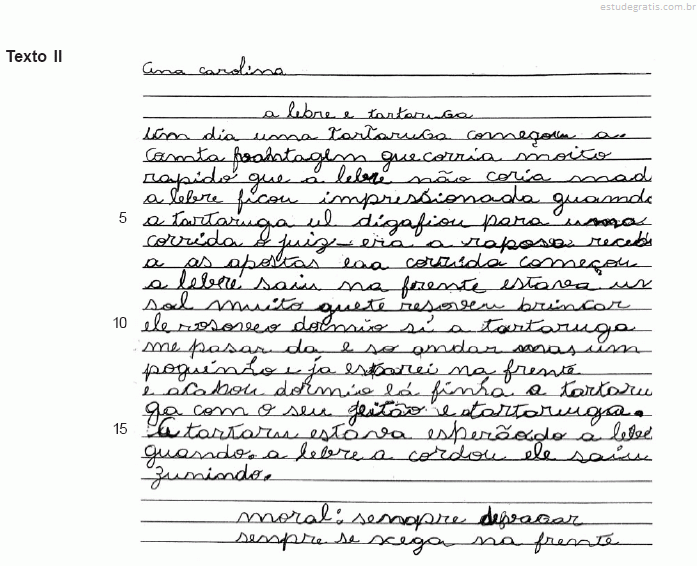 estudegratis.com.br
Texto II
ana carolina
a lebre e tartaruga
um dia uma tartaruga começou a
comta que corria moito
rapido que a lebre não coria mad
a lebre ficou impressionada quando
5 a tartaruga ul digafiou para uma
corrida o juiz era a raposa recebi
a as apostas eaa corrida começou
a lebre saiu na forente estava un
sol muito quete resoveu brincar
10 ele rosoveo dormio si a tartaruga
me pasar da e so andar mas um
poguinho e ja estarei na frente
e acabou dormio lá finha a tartaru
ga com o seu jeitão e tartaruga.
15 a tartaru estava esperãodo a lebre
quando. a lebre a cordou ele saiu
zunindo.
moral: senopre
sempre se xega na frente